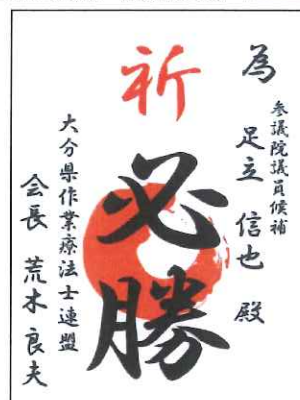 為
参議院議員候補
足立信也殿
祈
必勝
大分県作業療法士連盟
会長 荒木良夫